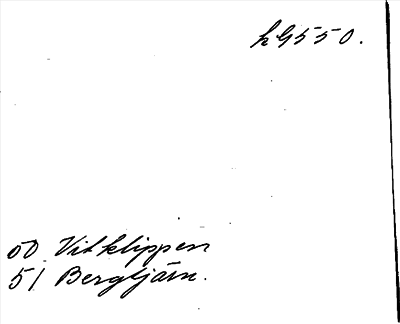 kG550.
50 Vitklippen
51 Bergtjärn.